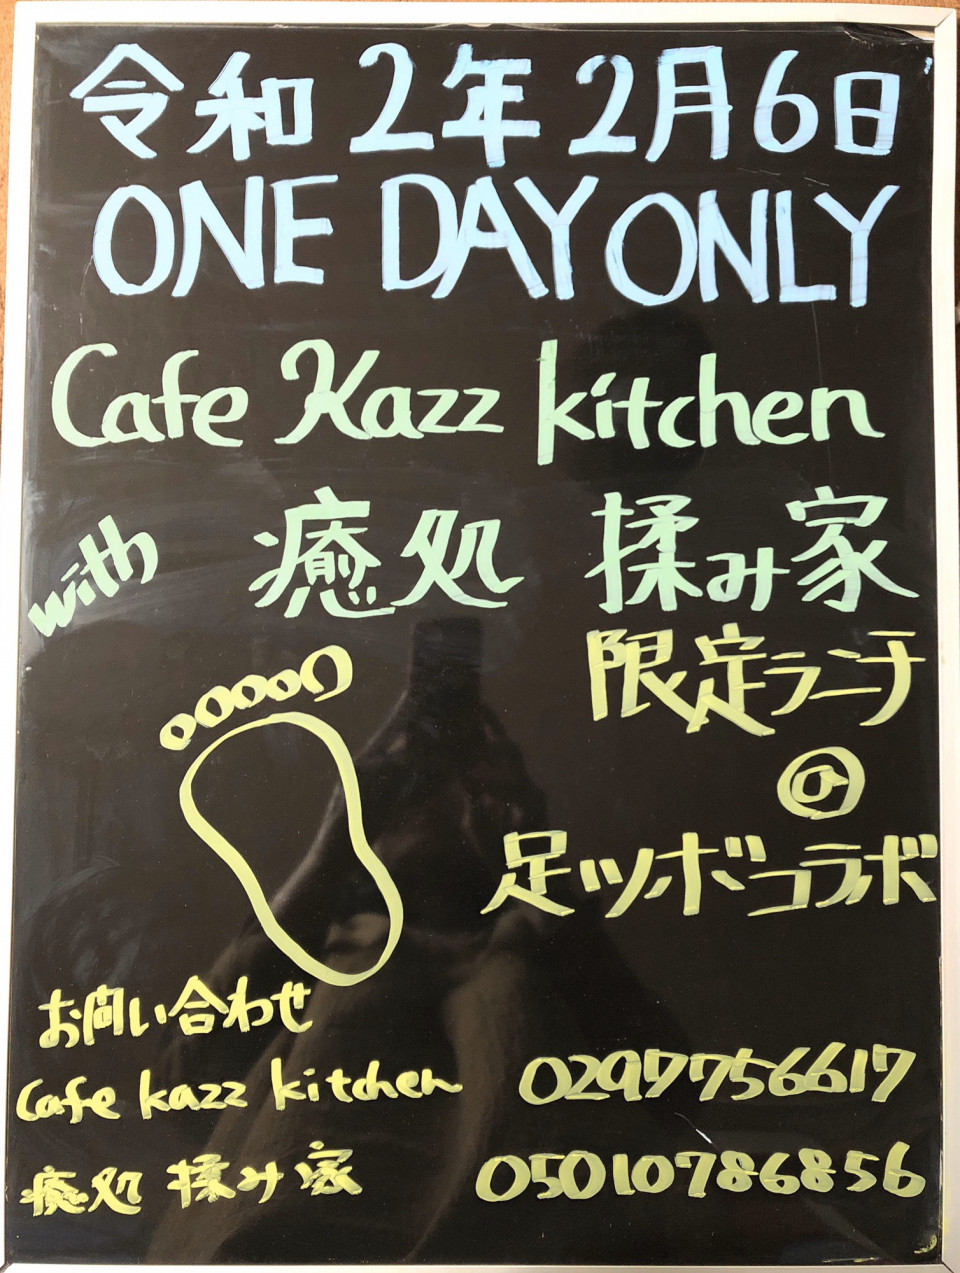 令和2年2月6日
ONE DAY ONLY
Cafe Kazz kitchen
with 癒処 揉み家
限定ランチ
@
足ツボコラボ
お問い合わせ
Cafe kazz kitchen 0297756617
癒処 揉み家 05010786856